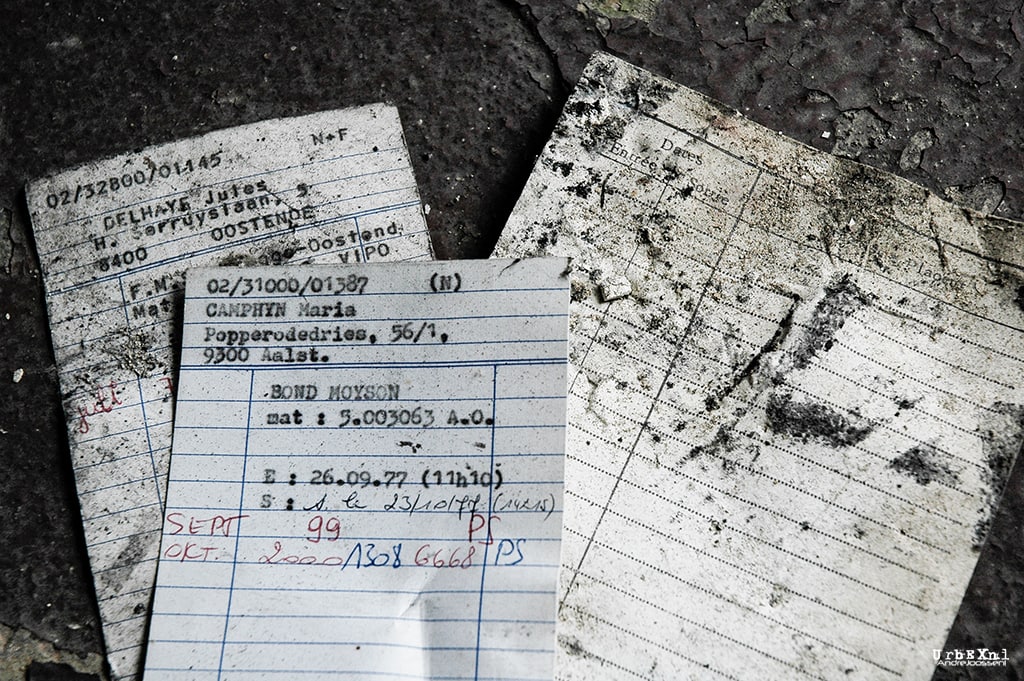 02/32800/01145 N+F
DELHAYE Jules
H. Serruyslaan, 9
8400 OOSTENDE
Oostend.
F.M. VIPO
Mat
02/31000/01387 (N)
CAMPHYN Maria
Popperodedries, 56/1,
9300 Aalst.
BOND MOYSON
mat : 5.003063 A.O.
E : 26.09.77 (11h10)
S : 23/10/77 (14h15)
SEPT 99 PS
OKT 2000/1308 6668 PS
Dates
Entrée
UrbEXnl
©AndreJoosse.nl